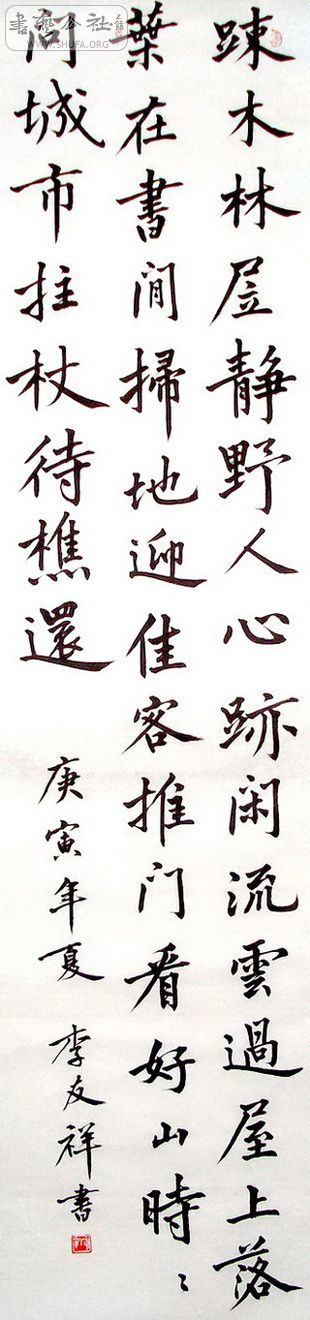 踈木林㞐静野人心跡闲流雲過屋上落
葉在書间掃地迎佳客推门看好山時〻
问城市拄杖待樵還
庚寅年夏 李友祥書
書藝公社
WWW.SHUFA.ORG